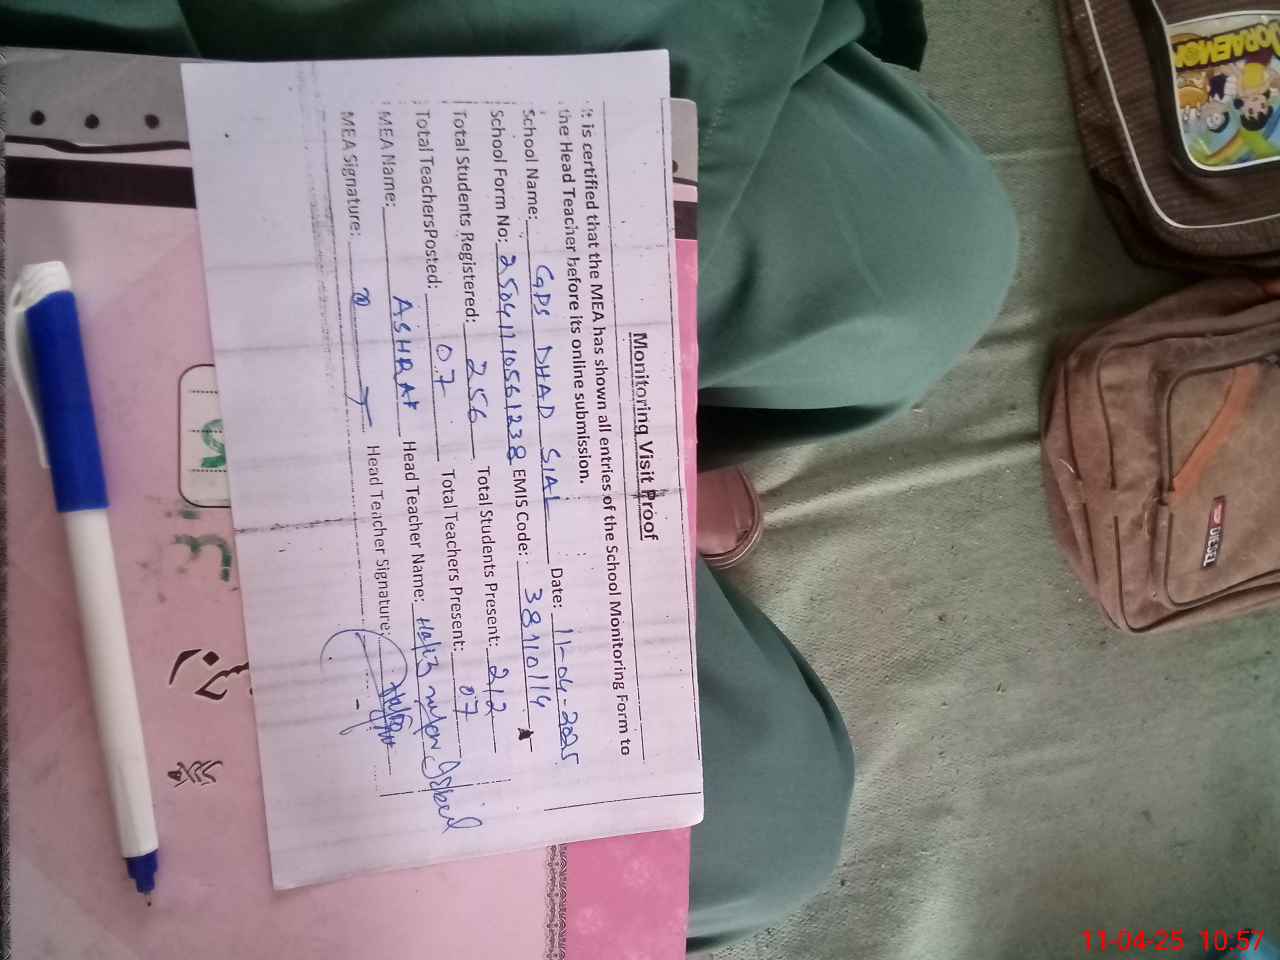 Monitoring Visit Proof
It is certified that the MEA has shown all entries of the School Monitoring Form to
the Head Teacher before its online submission.
School Name: GPS DHAD SIAL Date: 11-04-2025
School Form No: 2504111056 1238 EMIS Code: 38110114
Total Students Registered: 256 Total Students Present: 212
Total TeachersPosted: 07 Total Teachers Present: 07
MEA Name: ASHRAF Head Teacher Name: Hafiz
MEA Signature: Head Teacher Signature:
DORAEMON
DIESEL
11-04-25 10:57